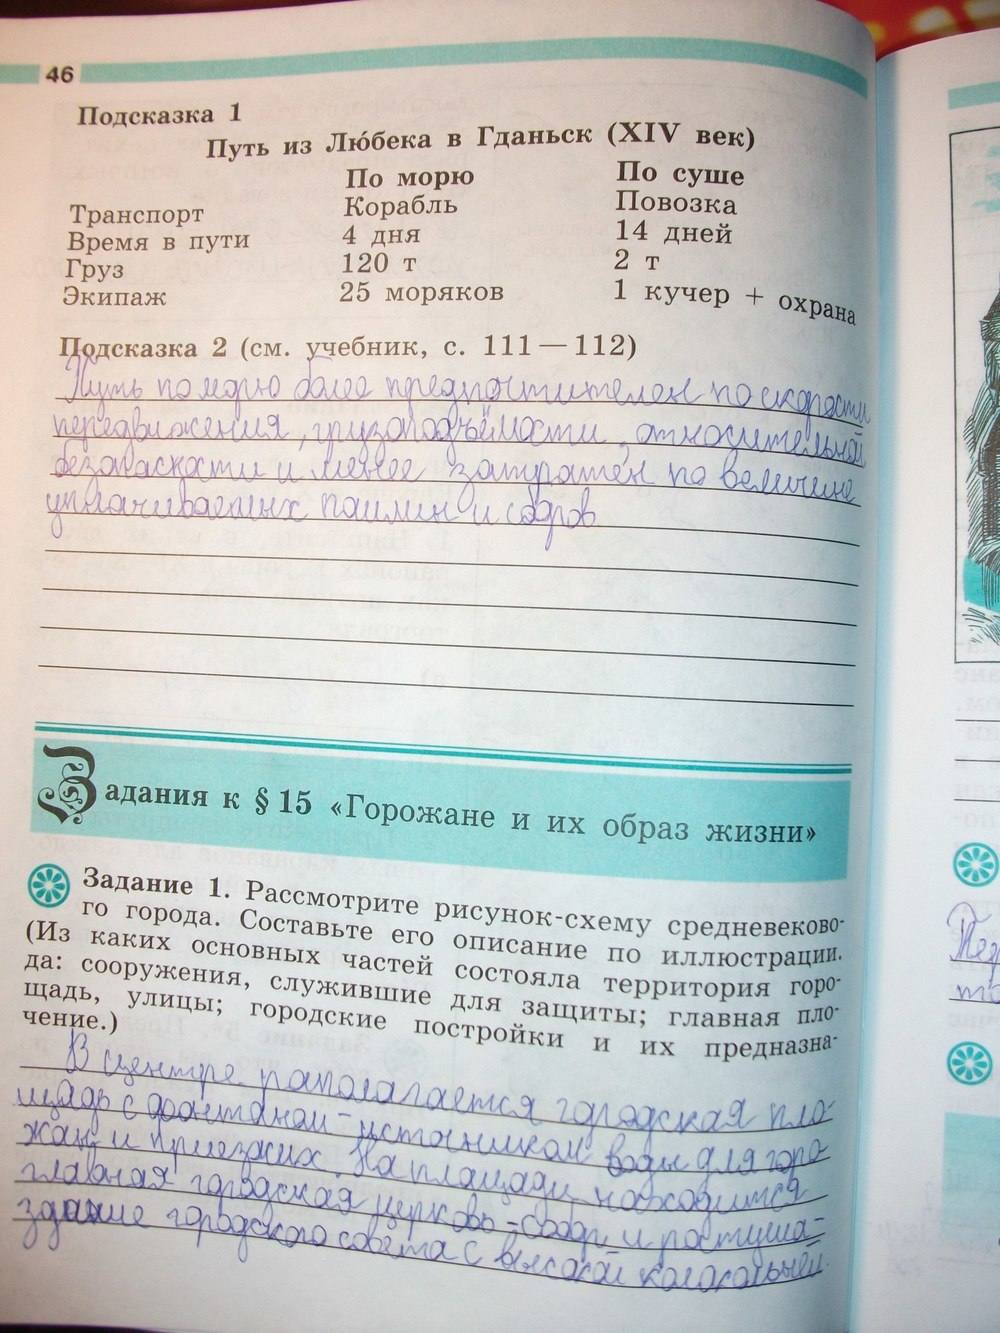 46
Подсказка 1
Путь из Лю́бека в Гданьск (XIV век)
По морю По суше
Транспорт Корабль Повозка
Время в пути 4 дня 14 дней
Груз 120 т 2 т
Экипаж 25 моряков 1 кучер + охрана
Подсказка 2 (см. учебник, с. 111—112)
Путь по морю более предпочтителен по скорости
передвижения, грузоподъёмости, относительной
безопасности и менее затратен по величине
уплачиваемых пошлин и сборов
Задания к § 15 «Горожане и их образ жизни»
Задание 1. Рассмотрите рисунок-схему средневеково-
го города. Составьте его описание по иллюстрации.
(Из каких основных частей состояла территория горо-
да: сооружения, служившие для защиты; главная пло-
щадь, улицы; городские постройки и их предназна-
чение.)
В центре располагается городская пло-
щадь с фонтаном - источником воды для горо-
жан и приезжих. На площади находится
главная городская церковь - собор и ратуша -
здание городского совета с высокой колокольней